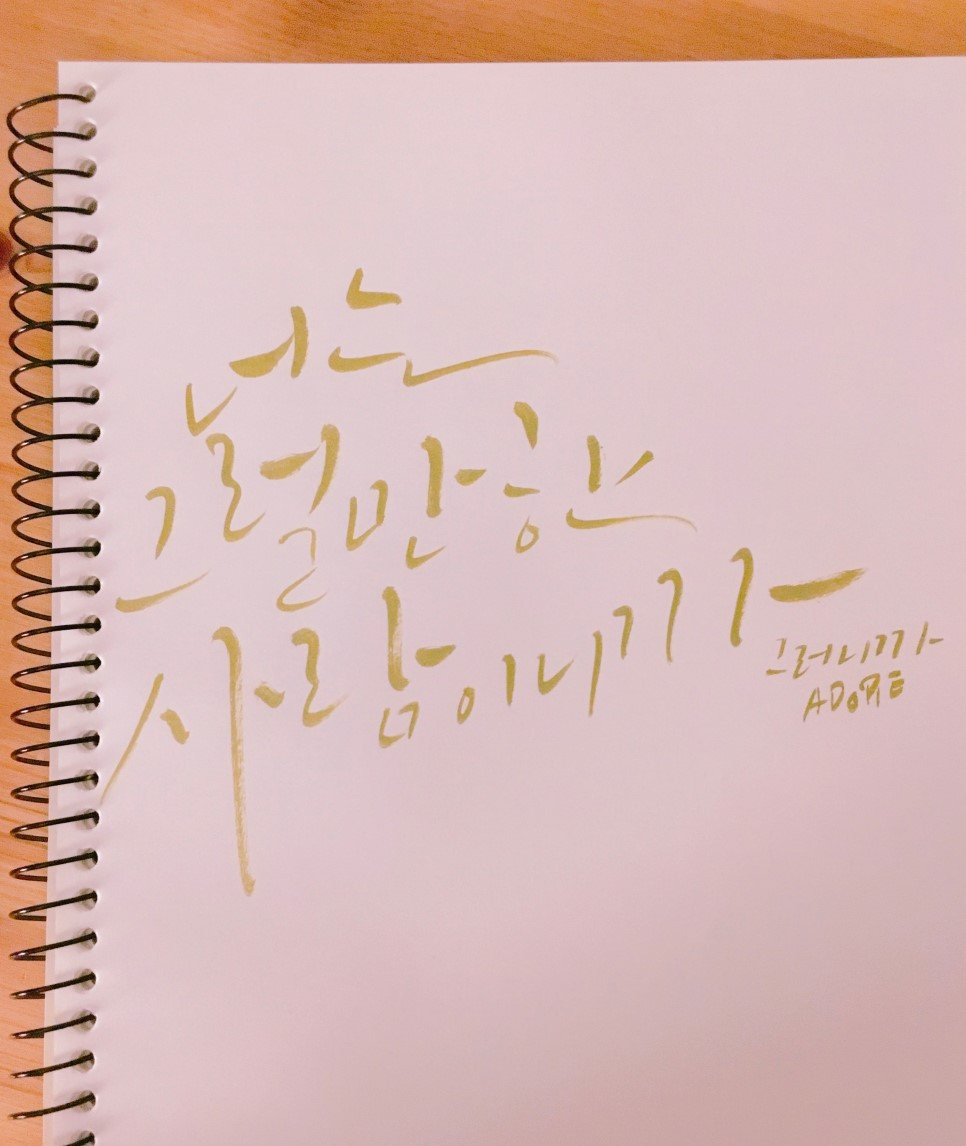 너는
그럴만한
사람이니까
그러니까
ADORE